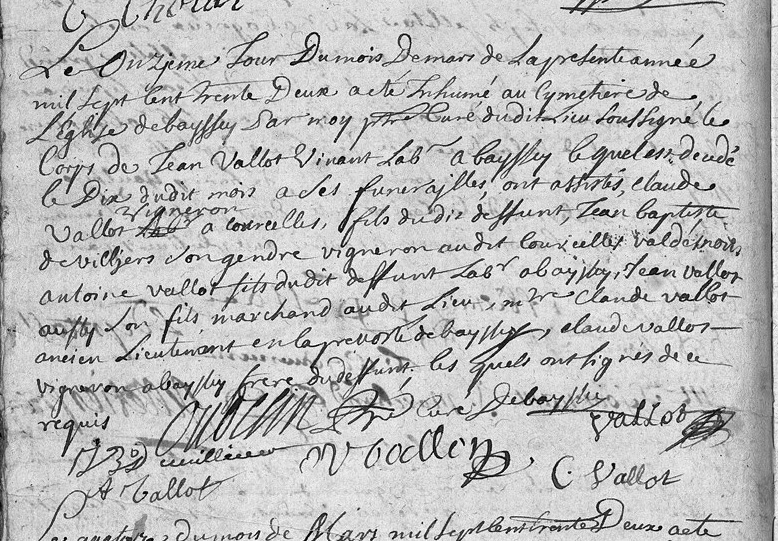 Le onzieme Jour Du mois De mars de La presente année
mil sept cent trente Deux a eté Inhumé au Cymetiere de
L'Eglize de bayssey Par moy ptre Curé dudit Lieu soussigné le
Corps de Jean Vallot Vivant Labr a bayssey le quel est decedé
le Dix dudit mois a ses funerailles, ont assistés, claude
vigneron
Vallot a courcelles, fils du dit deffunt, Jean baptiste
de villiers son gendre vigneron audit courcelles valdesnois
antoine vallot fils du dit deffunt Labr a bayssey, Jean vallot
aussy son fils marchand audit Lieu, mre Claude vallot
ancien Lieutenant en la prevosté de bayssey, claude vallot
vigneron a bayssey frere du deffunt. les quels ont signés de ce
requis
ptre Curé De bayssey
vallot
A vallot
C. Vallot
Le quatorze du mois de Mars mil sept cent trente Deux a eté